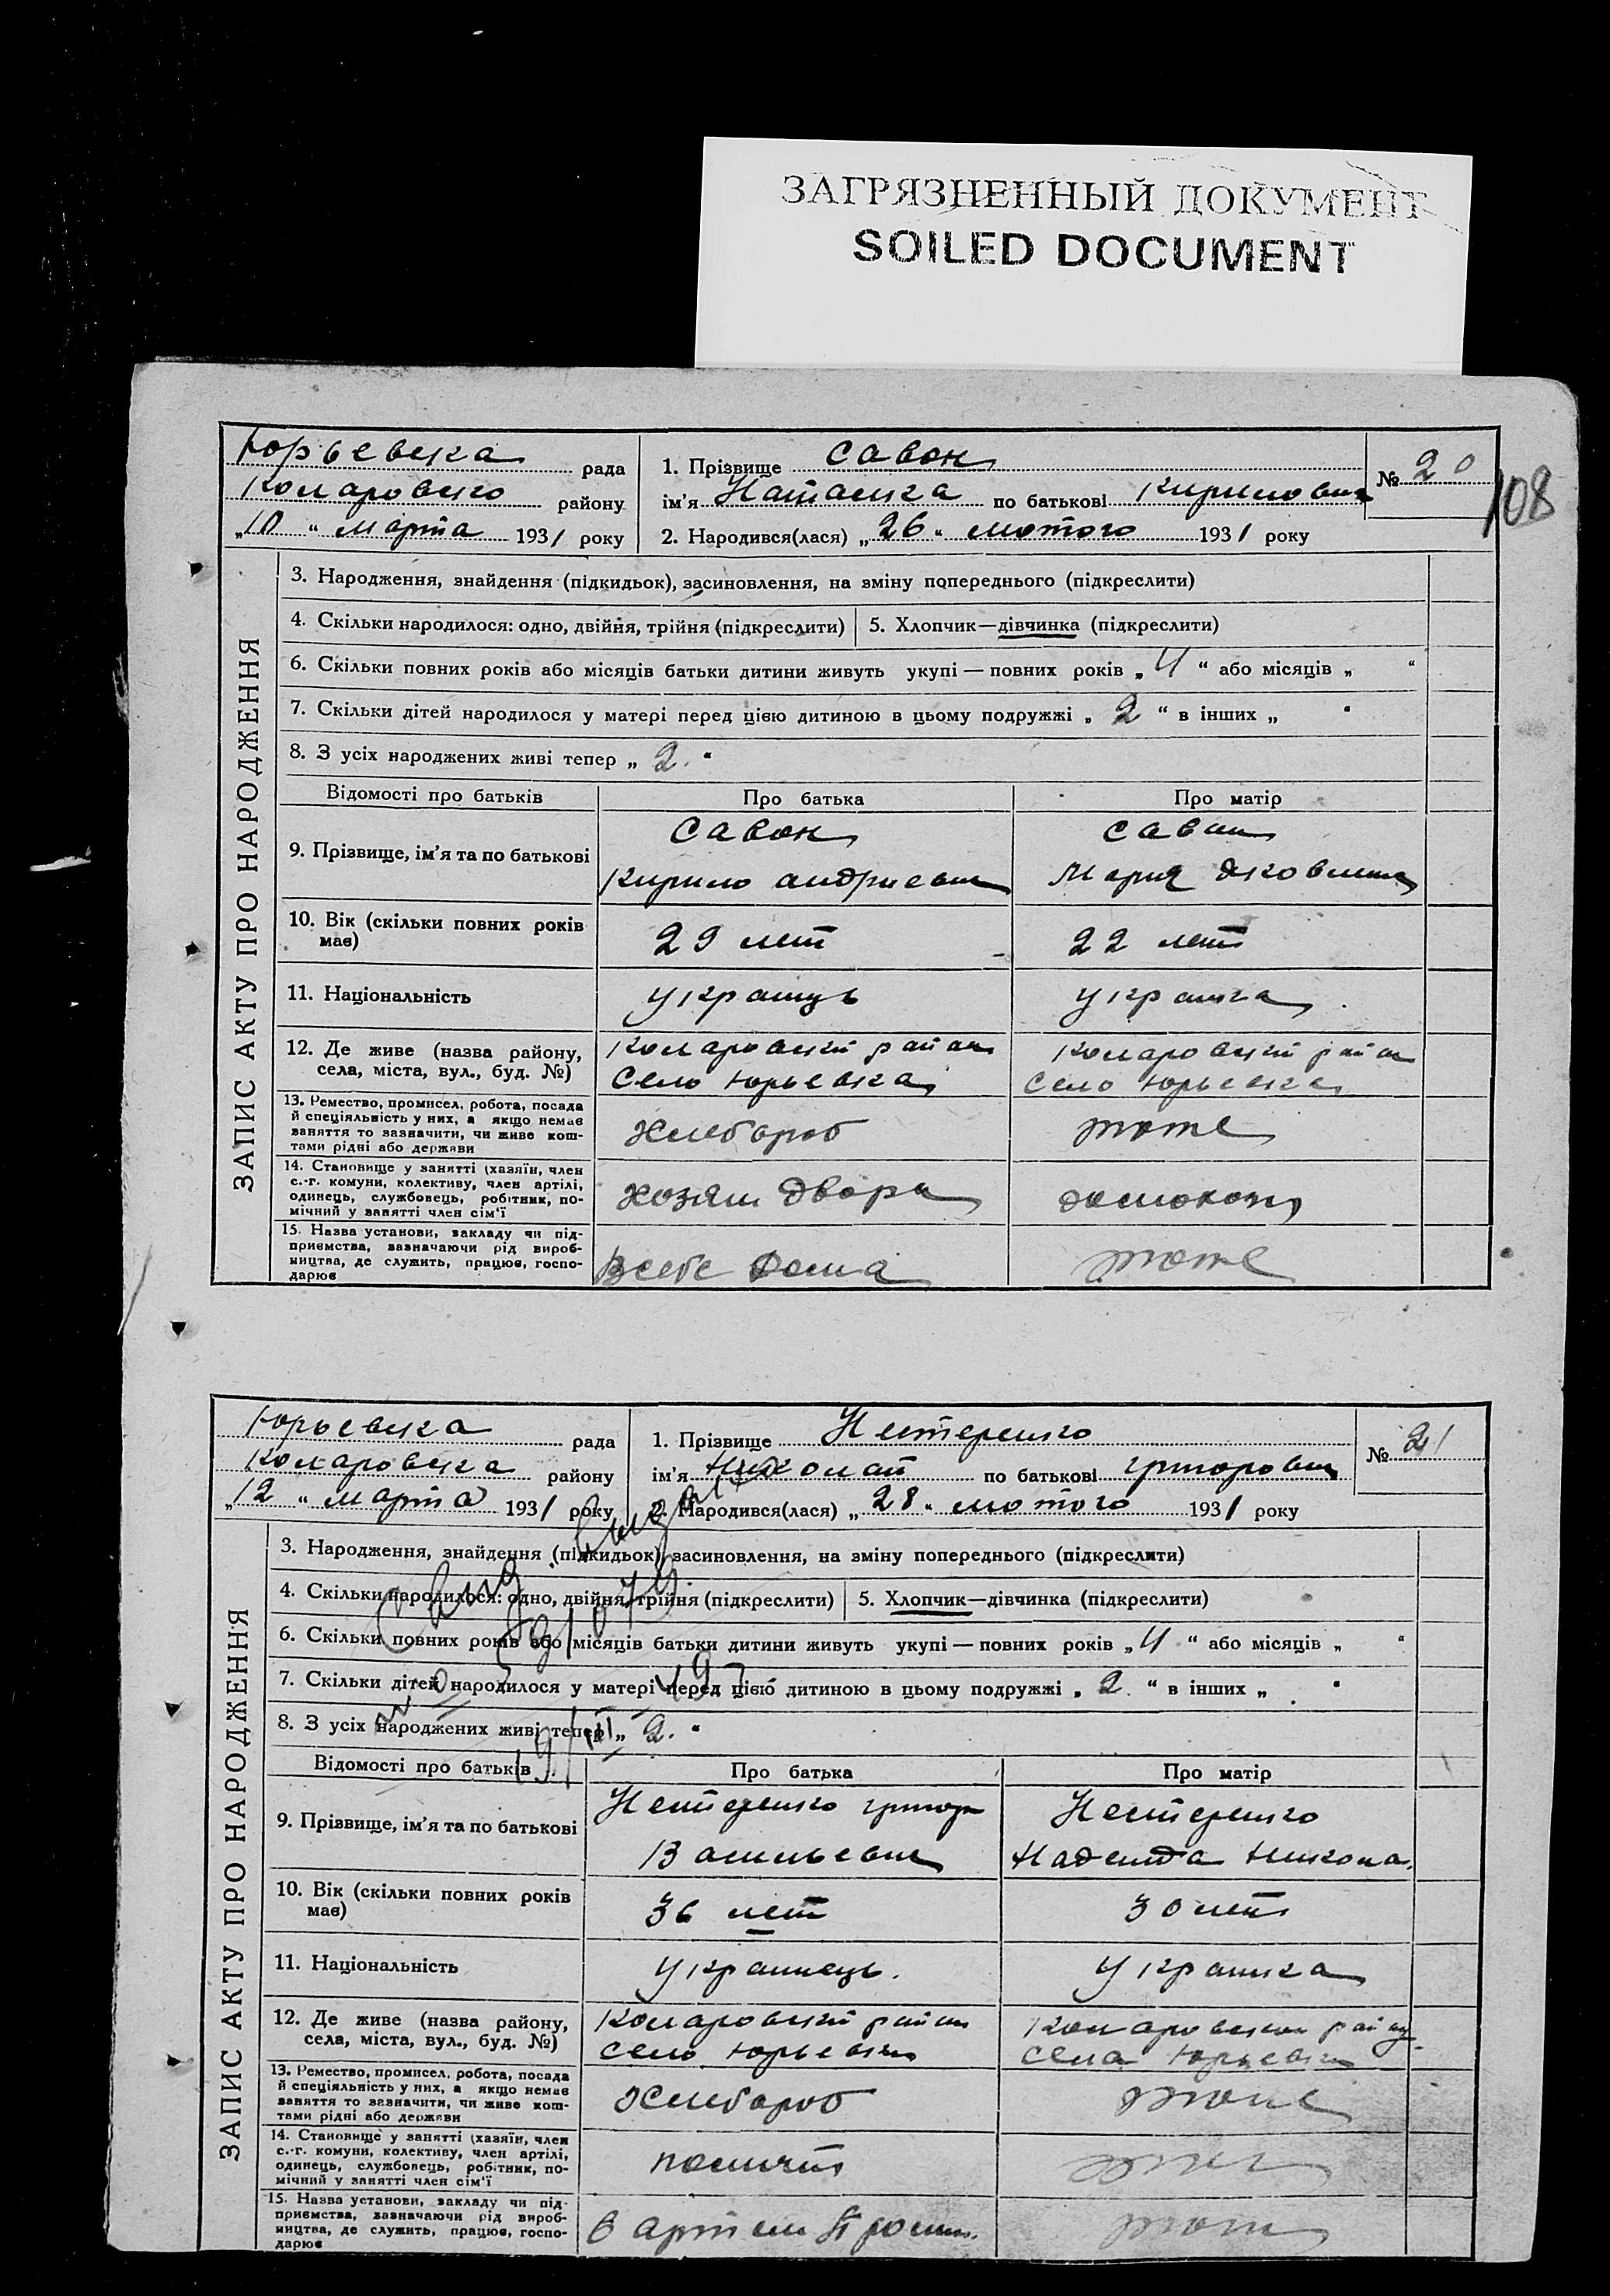 ЗАГРЯЗНЕННЫЙ ДОКУМЕНТ
SOILED DOCUMENT
108
Юрьевска рада
Комаровско району
„10“ марта 1931 року
1. Прізвище Савон
ім'я Наташка по батькові Кирилович
2. Народився(лася) „26“ лютого 1931 року
№ 20
ЗАПИС АКТУ ПРО НАРОДЖЕННЯ
3. Народження, знайдення (підкидьок), засиновлення, на зміну попереднього (підкреслити)
4. Скільки народилося: одно, двійня, трійня (підкреслити) 5. Хлопчик—дівчинка (підкреслити)
6. Скільки повних років або місяців батьки дитини живуть укупі — повних років „4“ або місяців „ “
7. Скільки дітей народилося у матері перед цією дитиною в цьому подружжі „2“ в інших „ “
8. З усіх народжених живі тепер „2.“
Відомості про батьків Про батька Про матір
9. Прізвище, ім'я та по батькові
Савон
Кирило андриевич
Савон
Мария Яковлевна
10. Вік (скільки повних років має)
29 лет
22 лет
11. Національність
Українць
Українка
12. Де живе (назва району,
села, міста, вул., буд. №)
Комаровский район
Село Юрьевка
Комаровский район
Село Юрьевка
13. Ремество, промисел, робота, посада
й спеціяльність у них, а якщо немає
заняття то зазначити, чи живе кош-
тами рідні або держави
Хлебороб
тоже
14. Становище у занятті (хазяїн, член
с.-г. комуни, колективу, член артілі,
одинець, службовець, робітник, по-
мічний у занятті член сім'ї
хозяин двора
15. Назва установи, закладу чи під-
приємства, зазначаючи рід вироб-
ництва, де служить, працює, госпо-
дарює
В себе дома
тоже
Юрьевска рада
Комаровска району
„12“ марта 1931 року
1. Прізвище Нестеренко
ім'я Николай по батькові григорович
2. Народився(лася) „28“ лютого 1931 року
№ 21
ЗАПИС АКТУ ПРО НАРОДЖЕННЯ
3. Народження, знайдення (підкидьок), засиновлення, на зміну попереднього (підкреслити)
4. Скільки народилося: одно, двійня, трійня (підкреслити) 5. Хлопчик—дівчинка (підкреслити)
6. Скільки повних років або місяців батьки дитини живуть укупі — повних років „4“ або місяців „ “
7. Скільки дітей народилося у матері перед цією дитиною в цьому подружжі „2“ в інших „ “
8. З усіх народжених живі тепер „2.“
Відомості про батьків Про батька Про матір
9. Прізвище, ім'я та по батькові
Нестеренко григор
Васильевич
Нестеренко
Надежда Никола.
10. Вік (скільки повних років має)
36 лет
30 лет
11. Національність
Українець.
Українка
12. Де живе (назва району,
села, міста, вул., буд. №)
Комаровский район
село Юрьевка
Комаровском району
села Юрьевка
13. Ремество, промисел, робота, посада
й спеціяльність у них, а якщо немає
заняття то зазначити, чи живе кош-
тами рідні або держави
Хлебороб
тоже
14. Становище у занятті (хазяїн, член
с.-г. комуни, колективу, член артілі,
одинець, службовець, робітник, по-
мічний у занятті член сім'ї
15. Назва установи, закладу чи під-
приємства, зазначаючи рід вироб-
ництва, де служить, працює, госпо-
дарює
В артели
тоже